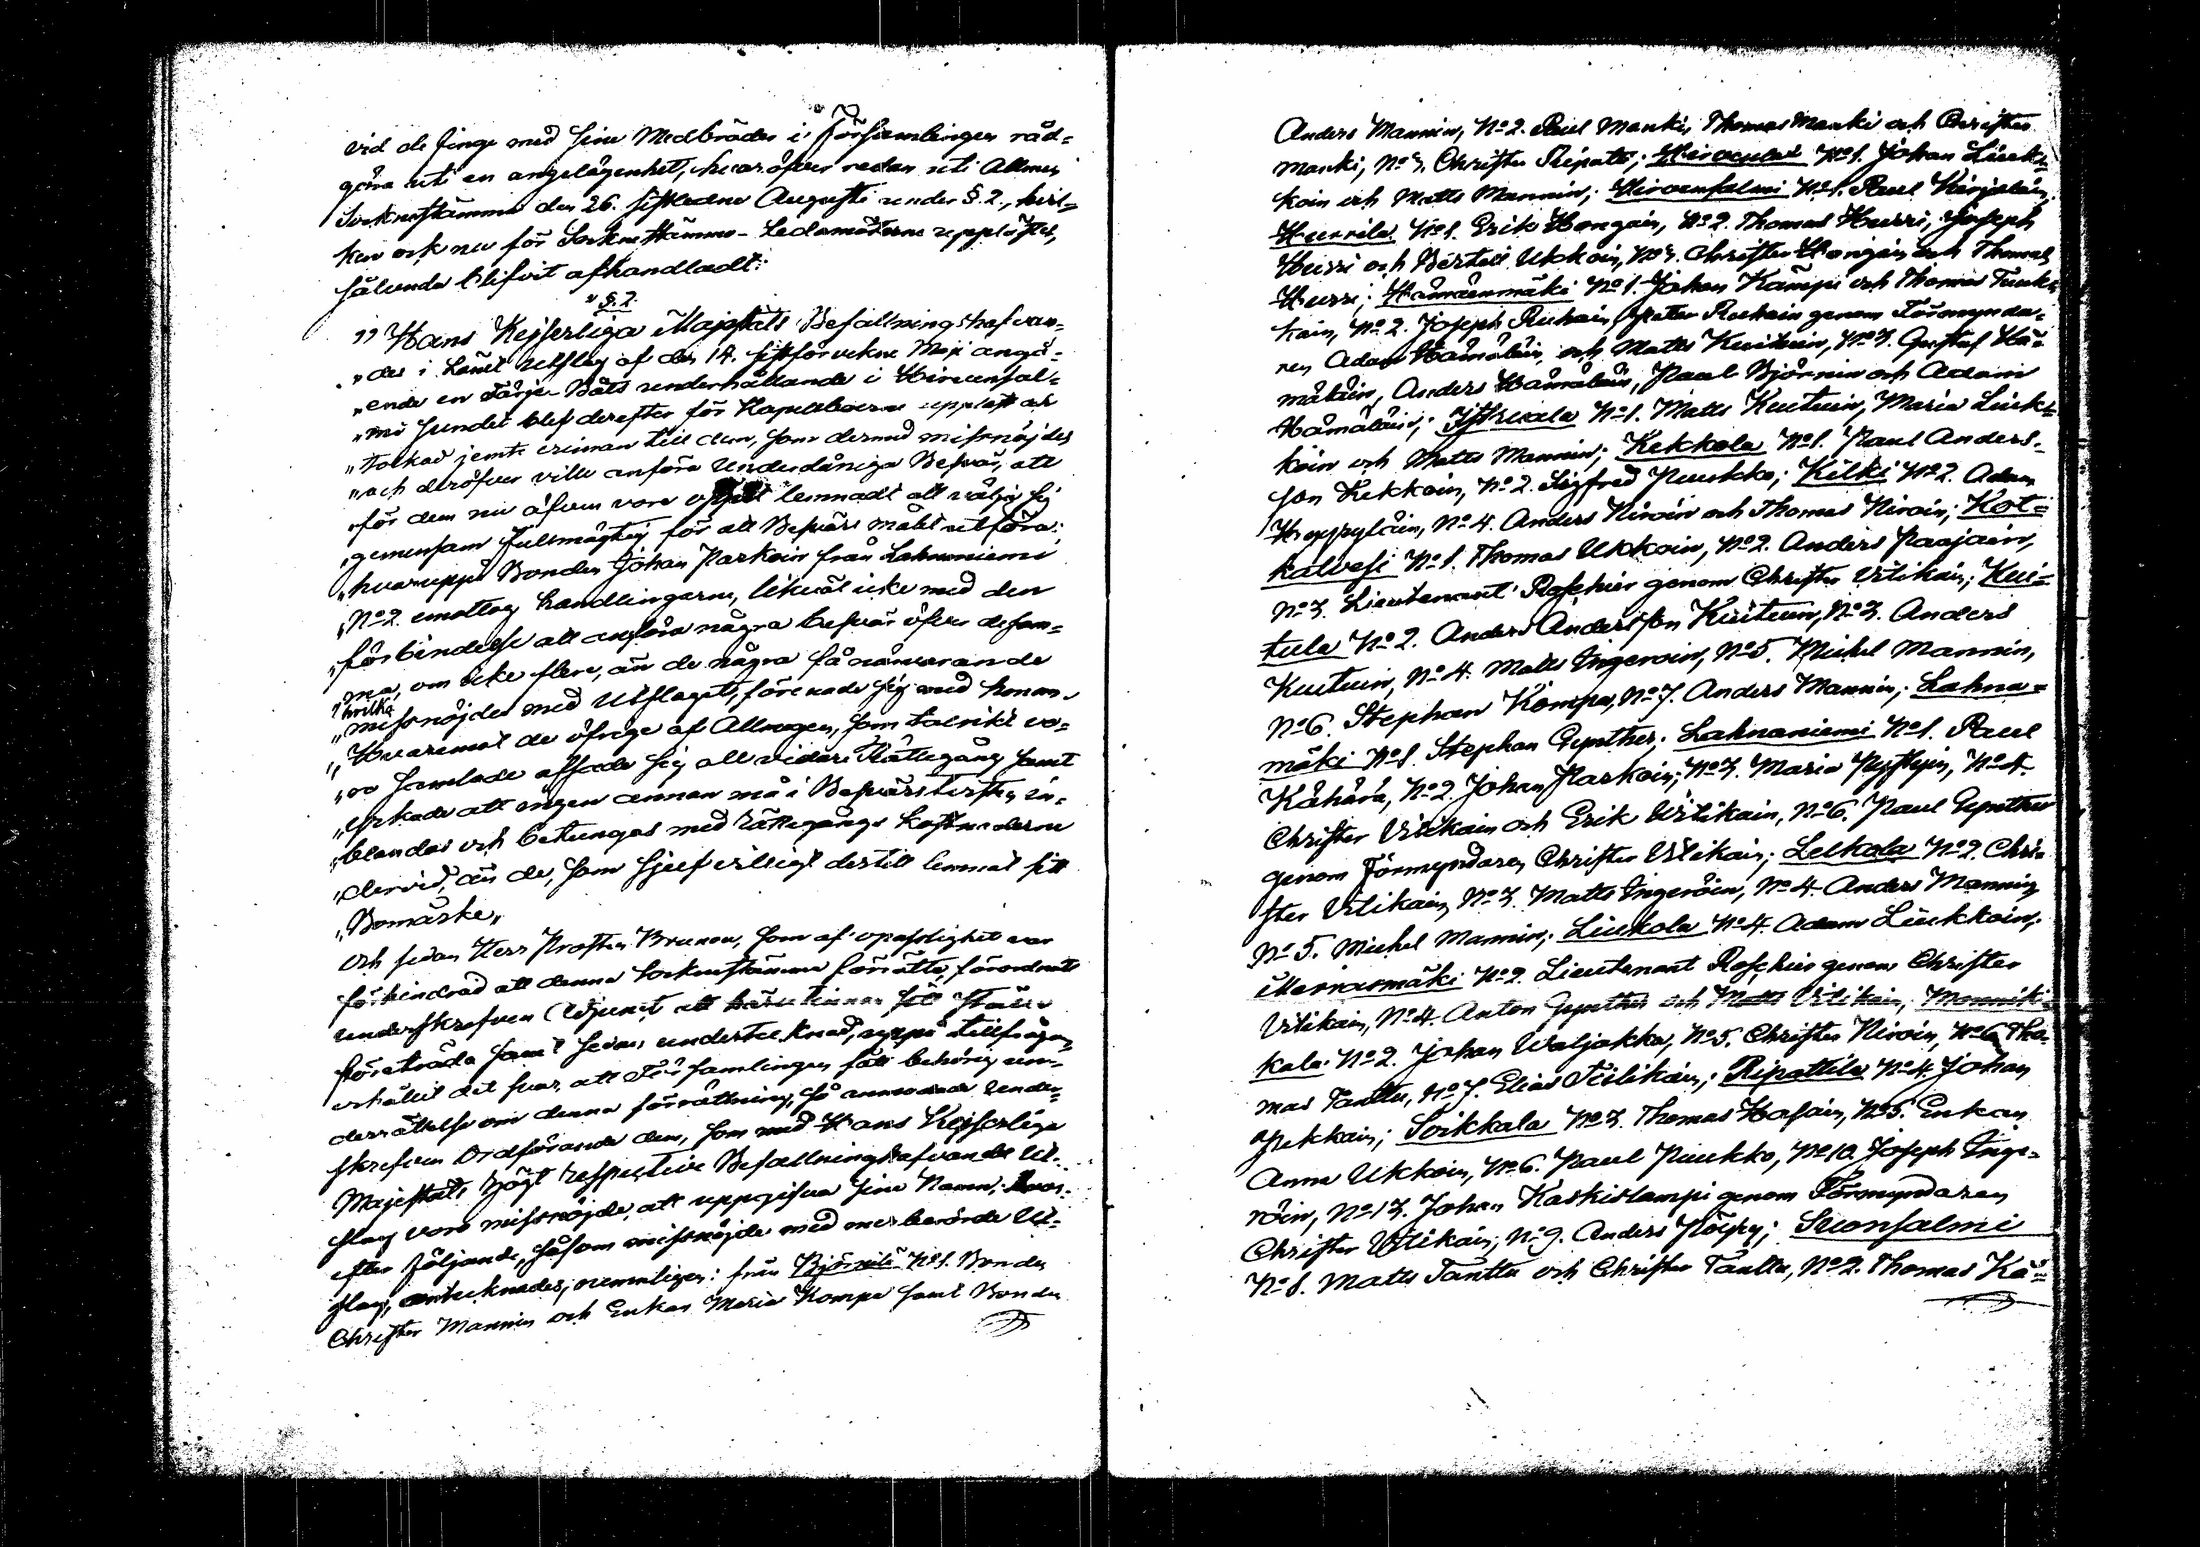 vid de tinge med sine Medbröder i Församlingen råd=
göra uti en angelägenhet, hvaröfver redan uti Allmen
Sockenstämma den 26. sistledne Augusti under §. 2., hvil=
ken ock nu för Sockenstämmo-Ledamöterne upplästes,
sålunda blifvit afhandladt:
"§. 2.
"Hans Kejserliga Majestäts Befallningshafvan=
"des i Länet Utslag af den 14. sistförvekne Maji angå=
"ende en Färje-Båts underhållande i Hirvensal=
"mi sundet blef derefter för Kapellboerne uppläst och
"tolkad jemte erinran till dem, som dermed missnöjdes
"och deröfver ville anföra Underdåniga Besvär, att
"för dem nu äfven vore lemnadt att välja sig
"gemensam fullmägtig för att Besvärs målet utföra;
"hvaruppå Bonden Johan Parkoin från Lahnaniemi
"No 2 emottog handlingarne, likväl icke med den
"förbindelse att anföra några besvär öfver desam=
"ma, om icke flere, än de några få närvarande
hvilka
"missnöjdes med Utslaget, förenade sig med honom.
"Hvaremot de öfrige af Allmogen, som talrikt vo=
"ro samlade afsade sig all vidare Rättegång samt
"yrkade att ingen annan må i Besvärstvisten in=
"blandas och betungas med rättegångs kostnaderne
"dervid, än de, som sjelfvilligt dertill lemnat sitt
"Bomärke,,
Och sedan Herr Prosten Brunou, som af opasslighet var
förhindrad att denna Sockenstämma förrätta, förordnat
underskrefven Adjunct att härutinnan sitt ställe
företräda samt sedan undertecknad, uppå tillfrågan,
erhållit det svar, att Församlingen fått behörig un=
derrättelse om denna förrättning, så anmodade under=
skrefven Ordförande dem, som med Hans Kejserliga
Majestäts Högt respective Befallningshafvandes Ut=
slag voro missnöjde, att uppgifva sine Namn;
efter följande, såsom missnöjde med merberörde Ut=
slag, antecknades, nemmligen: från Björnilä No 1. Bonden
Christer Mannin och Enkan Maria Kompa samt Bonden
Anders Mannin, No 2. Paul Manki, Thomas Manki och Christer
Manki, No 3. Christer Ripatti; No 1. Johan Liuk=
koin och Matts Mannin; Hirvensalmi No 1. Paul Karjalain,
Hurrila No 1. Erik Hongain, No 2. Thomas Hurri, Joseph
Hurri och Bertell Ukkoin, No 3. Christer Hongain och Thomas
Hurri; Hämäenmäki No 1. Johan Kämpi och Thomas Tuuk=
kain, No 2. Joseph Ruhain, Peter Ruhain genom Förmynda=
ren Adam Hämäläin och Matts Kuituin, No 3. Gustaf Hä=
mäläin, Anders Hämäläin, Paul Björnin och Adam
Hämäläin; No 1. Matts Kuituin, Maria Liuk=
koin och Matts Mannin; Kekkola No 1. Paul Anders=
son Kekkoin, No 2. Sigfred Puukko; Kilki No 2. Adam
Heppyläin, No 4. Anders Niroin och Thomas Niroin; Kot=
kalvesi No 1. Thomas Ukkoin, No 2. Anders Paajain,
No 3. Lieutenant Roschier genom Christer Vilikain; Kui=
tula No 2. Anders Andersson Kuituin, No 3. Anders
Kuituin, No 4. Matts Ingeroin, No 5. Michel Mannin,
No 6. Stephan Kompa, No 7. Anders Mannin; Lahna=
mäki No 1. Stephan Gynther; Lahnaniemi No 1. Paul
Kähärä, No 2. Johan Parkoin; No 3. Maria Pystyin, No 4.
Christer Vilikain och Erik Vilikain, No 6. Paul Gynther
genom Förmyndaren Christer Vilikain; Leikola No 2. Chri=
ster Vilikain, No 3. Matts Ingeroin, No 4. Anders Mannin,
No 5. Michel Mannin; Liukola No 4. Adam Liukkoin;
Mernasmäki No 2. Lieutenant Roschier genom Christer
Vilikain, No 4. Anton Gynther och Matts Vilikain; Monnik=
kala No 2. Johan Waljakka, No 5. Christer Niroin, No 6. Tho=
mas Tanttu, No 7. Elias Tiilikain; Ripattila No 4. Johan
Pekkain; Soikkala No 3. Thomas Hasain, No 5. Enkan
Anna Ukkoin, No 6. Paul Puukko, No 10. Joseph Inge=
roin, No 13. Johan Kaskislampi genom Förmyndaren
Christer Vilikain; No 9. Anders Pöiry; Suonsalmi
No 1. Matts Tanttu och Christer Tanttu, No 2. Thomas Kä=